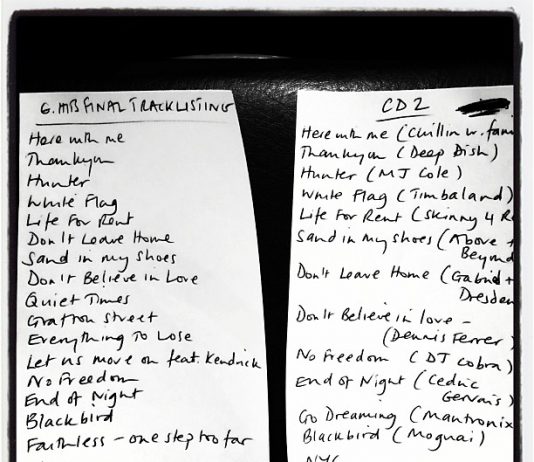 G. HB FINAL TRACKLISTING
Here with me
Thankyou
Hunter
White Flag
Life For Rent
Don't Leave Home
Sand in my shoes
Don't Believe in Love
Quiet Times
Grafton Street
Everything To Lose
Let us move on feat. Kendrick
No Freedom
End of Night
Blackbird
Faithless - one step too far
CD 2
Here with me (Chillin w. fami
Thankyou (Deep Dish)
Hunter (MJ Cole)
White Flag (Timbaland)
Life For Rent (Skinny 4 R
Sand in my shoes (Above +
Beyond
Don't Leave Home (Gabriel +
Dresden
Don't Believe in love -
(Dennis Ferrer)
No Freedom (DJ Cobra)
End of Night (Cedric
Gervais)
Go Dreaming (Mantronix
Blackbird (Mogwai)
NYC